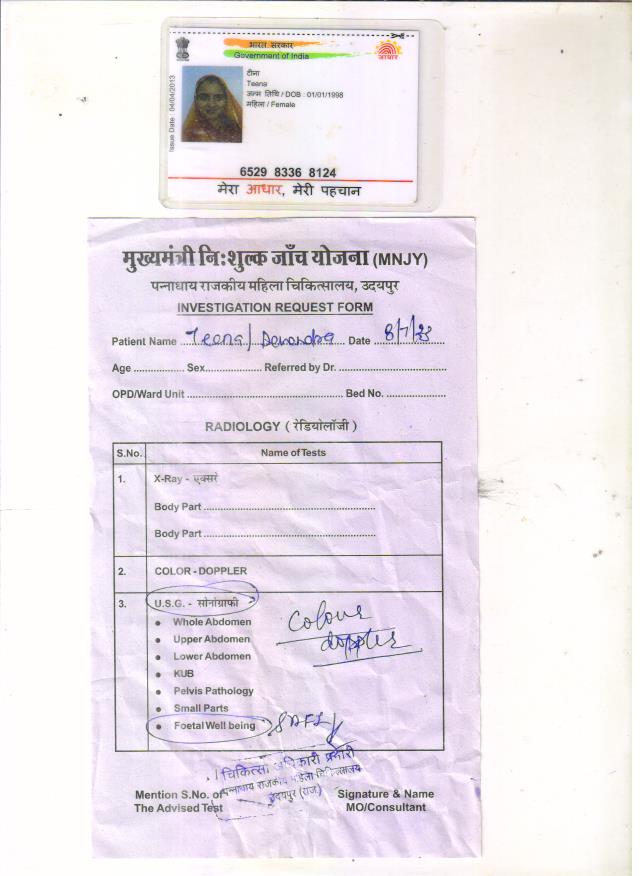 भारत सरकार
Government of India
आधार
Issue Date : 04/04/2013
टीना
Teena
जन्म तिथि / DOB : 01/01/1998
महिला / Female
6529 8336 8124
मेरा आधार, मेरी पहचान
मुख्यमंत्री निःशुल्क जाँच योजना (MNJY)
पन्नाधाय राजकीय महिला चिकित्सालय, उदयपुर
INVESTIGATION REQUEST FORM
Patient Name Teena/ Devendra Date 8/7/23
Age ................ Sex.................. Referred by Dr. ...................................
OPD/Ward Unit .................................................... Bed No. ....................
RADIOLOGY ( रेडियोलॉजी )
S.No. Name of Tests
1. X-Ray - एक्सरे
Body Part ........................................................
Body Part ........................................................
2. COLOR - DOPPLER
3. U.S.G. - सोनोग्राफी
Colour
doppler
• Whole Abdomen
• Upper Abdomen
• Lower Abdomen
• KUB
• Pelvis Pathology
• Small Parts
• Foetal Well being
चिकित्सा अधिकारी प्रभारी
पन्नाधाय राजकीय महिला चिकित्सालय
उदयपुर (राज.)
Mention S.No. of Signature & Name
The Advised Test MO/Consultant